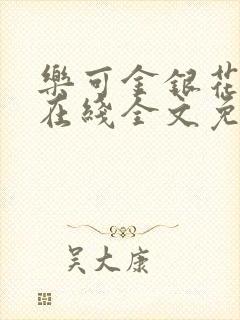 樂可金銀花
在綫全文免
吴大康